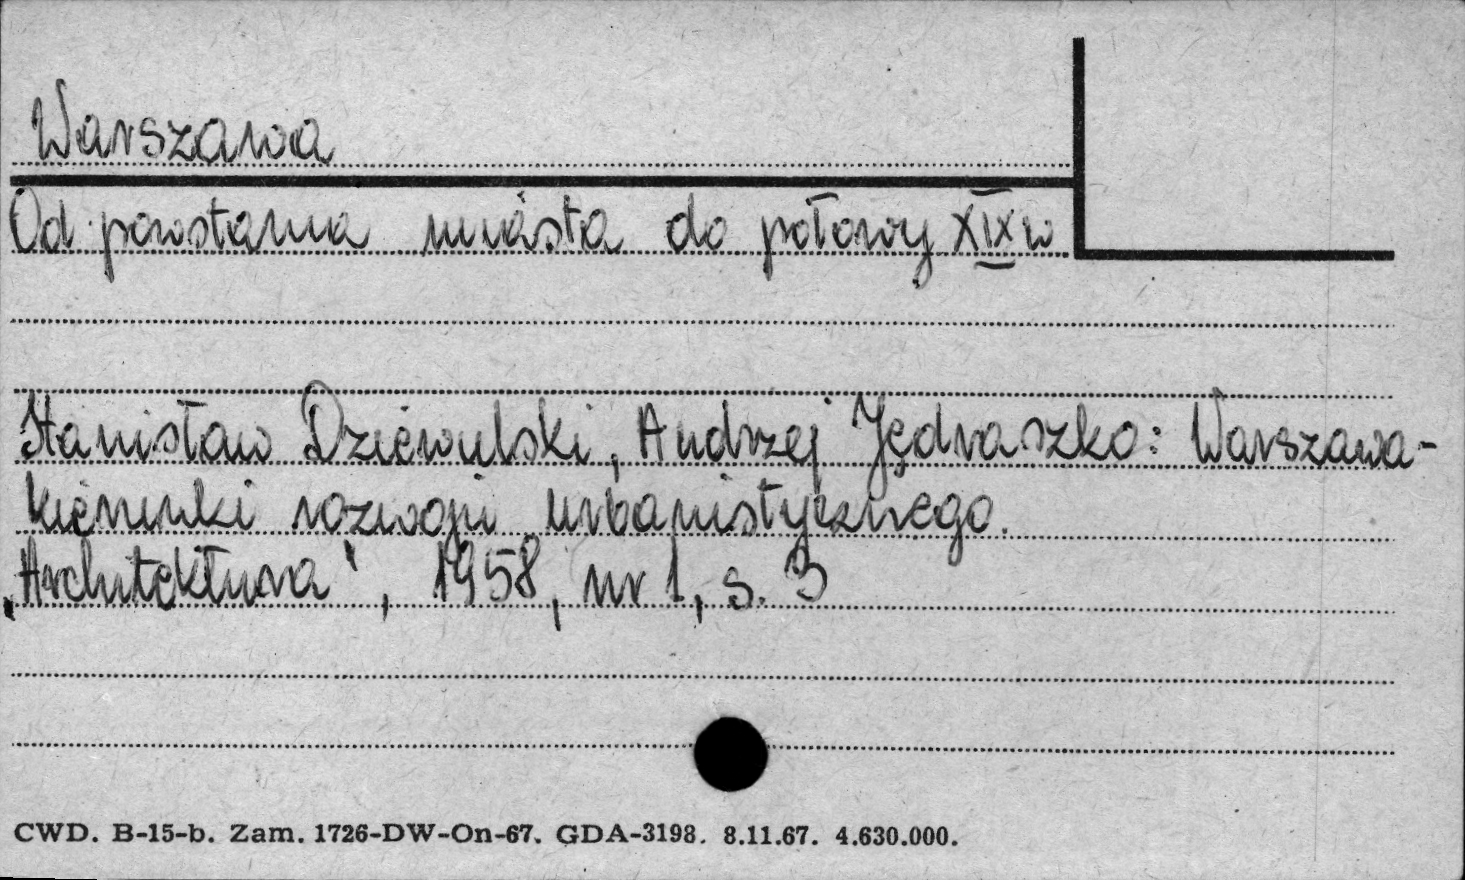 Warszawa
Od powstania miasta do połowy XIX w
Stanisław Dziewulski, Andrzej Jędraszko: Warszawa-
kierunki rozwoju urbanistycznego.
„Architektura", 1958, nr 1, s. 3
CWD. B-15-b. Zam. 1726-DW-On-67. GDA-3198. 8.11.67. 4.630.000.